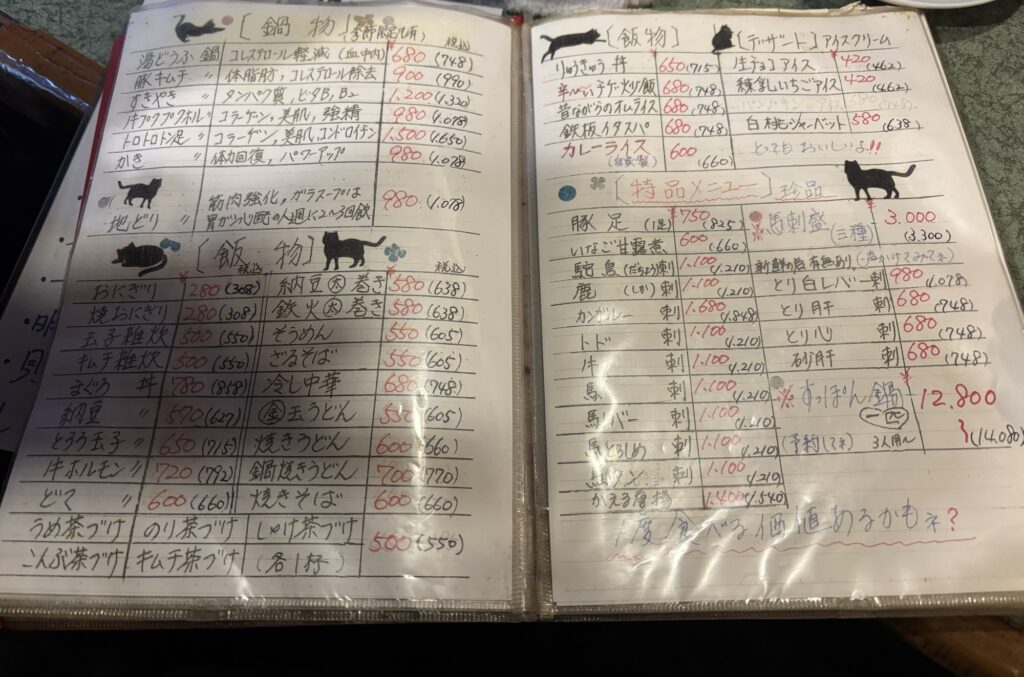 [鍋物] 季節限定有 税込
湯どうふ鍋 コレステロール軽減(血中内) ¥680(748)
豚キムチ 〃 体脂肪、コレステロール除去 900(990)
すきやき 〃 タンパク質、ビタB1、B2 1.200(1.320)
牛プクプクホル〃 コラーゲン、美肌、強精 980(1.078)
トロトロトン足〃 コラーゲン、美肌、コンドロイチン 1.500(1.650)
かき 〃 体力回復、パワーアップ 980(1.078)
地どり 〃 筋肉強化、ガラスープは 980(1.078)
胃ガン心配の人週に2〜3回飲
[飯物] 税込 税込
おにぎり ¥280(308) 納豆太巻き ¥580(638)
焼おにぎり 280(308) 鉄火太巻き 580(638)
玉子雑炊 500(550) そうめん 550(605)
キムチ雑炊 500(550) ざるそば 550(605)
まぐろ丼 780(858) 冷し中華 680(748)
納豆 〃 570(627) 釜玉うどん 550(605)
とろろ玉子〃 650(715) 焼きうどん 600(660)
牛ホルモン〃 720(792) 鍋焼きうどん 700(770)
どて 〃 600(660) 焼きそば 600(660)
うめ茶づけ のり茶づけ しゃけ茶づけ 500(550)
こんぶ茶づけ キムチ茶づけ (各1杯)
[飯物]
りゅうきゅう丼 ¥650(715)
辛〜いチゲ・火灯り飯 680(748)
昔ながらのオムライス 680(748)
鉄板イタスパ 680(748)
カレーライス 600
(自家製) (660)
[デザート] アイスクリーム
生チョコアイス ¥420(462)
練乳いちごアイス 420(462)
パンプキンアイス 680(748)
白桃シャーベット 580(638)
とってもおいしいよ!!
[特品メニュー] 珍品
豚足 (1足) ¥750(825)
いなご甘露煮 600(660)
駝鳥(だちょう)刺 1.100(1.210)
鹿 (しか) 刺 1.100(1.210)
カンガルー 刺 1.680(1.848)
トド 刺 1.100(1.210)
牛 刺 1.100(1.210)
馬 刺 1.100(1.210)
馬レバー 刺 1.100(1.210)
馬とろしめ 刺 1.100(1.210)
馬タン 刺 1.100(1.210)
かえる唐揚 1.400(1.540)
※馬刺盛(三種) ¥3.000(3.300)
新鮮の為有無あり。(声かけてみてネ)
とり白レバー刺 980(1.078)
とり肝 刺 680(748)
とり心 刺 680(748)
砂肝 刺 680(748)
※すっぽん鍋 ¥12.800
一匹 〜(14.080)
(予約してネ) 3人用〜
1度食べる価値あるかもネ?